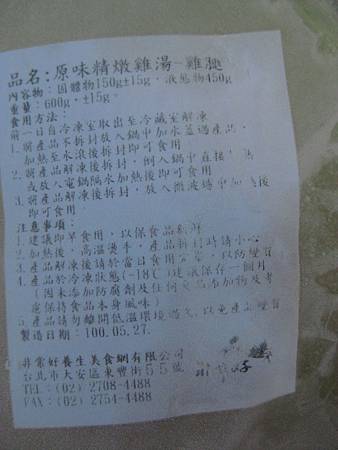 品名:原味精燉雞湯-雞腿
內容物:固體物150g±15g,液態物450g
重量:600g,±15g。
食用方法:
前一日自冷凍室取出至冷藏室解凍
1.將產品不拆封放入鍋中加水蓋過產品,
加熱至水滾後拆封,即可食用
2.將產品解凍後拆封,倒入鍋中直接
或放入電鍋隔水加熱後即可食用
3.將產品解凍後拆封,放入微波爐中加熱後
即可食用
注意事項:
1.建議即早食用,以保食品新鮮
2.加熱後,高溫燙手,產品拆封時請小心
3.產品解凍後請於當日食用完畢,以防變質
4.產品於冷凍狀態(-18℃)建議保存一個月
(因未添加防腐劑及任何食品添加物及考
慮保持食品本身風味)
5.產品請勿離開低溫環境過久,以免產品變質
製造日期:100.05.27.
非常好養生美食網有限公司
台北市大安區東豐街55號
TEL:(02) 2708-4488
FAX:(02) 2754-4488